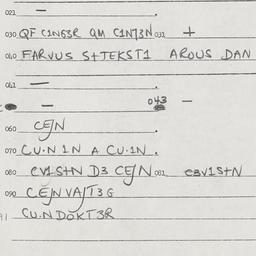 021 —
030 QF C1NG3R QM C1N73N 031 +
040 FARVUS S+TEKST1 AROUS DAN
041 —
— 043 —
060 CEJN
070 CU.N 1N A CU.1N.
080 CV1S+N D3 CEJN 081 C3V1S+N
090 CEJNVAJT3G
CU.NDOKT3R